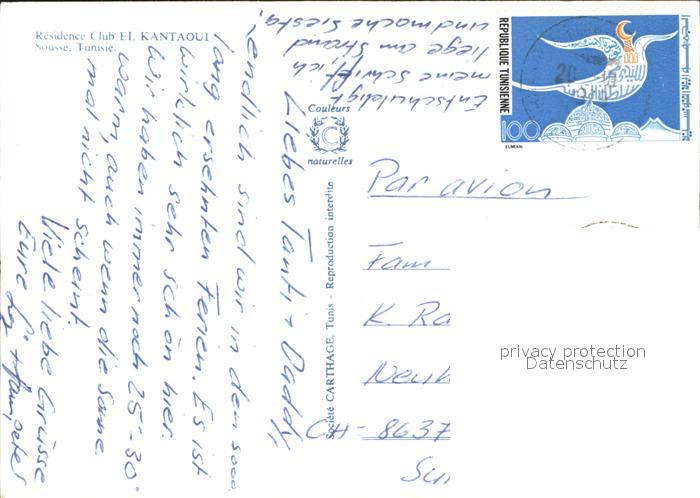 Résidence Club EL KANTAOUI
Sousse, Tunisie.
Entschuldigt
meine Schrift, ich
liege am Strand
und mache Siesta!
Liebes Tanti + Daddy,
endlich sind wir in den sooo
lang ersehnten Ferien. Es ist
wirklich sehr schön hier.
Wir haben immer noch 25-30°
warm, auch wenn die Sonne
mal nicht scheint
Viele liebe Grüsse
Eure
Couleurs
C
naturelles
Société CARTHAGE, Tunis - Reproduction interdite
REPUBLIQUE TUNISIENNE
100
Par avion
Fam
K. Ra
Neuh
CH-8637
privacy protection
Datenschutz